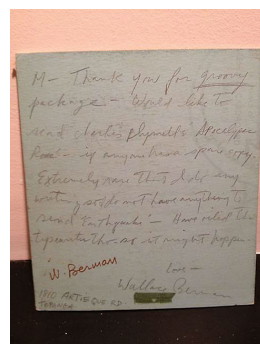 M— Thank you for groovy
package — Would like to
read Charles Plymell's Apocalypse
Rose — if anyone has a spare copy.
Extremely rare that I do any
writing so do not have anything to
send Earthquake — Have oiled the
typewriter tho. so it might happen.
Love —
Wallace Berman
"W. Berman
TOPANGA